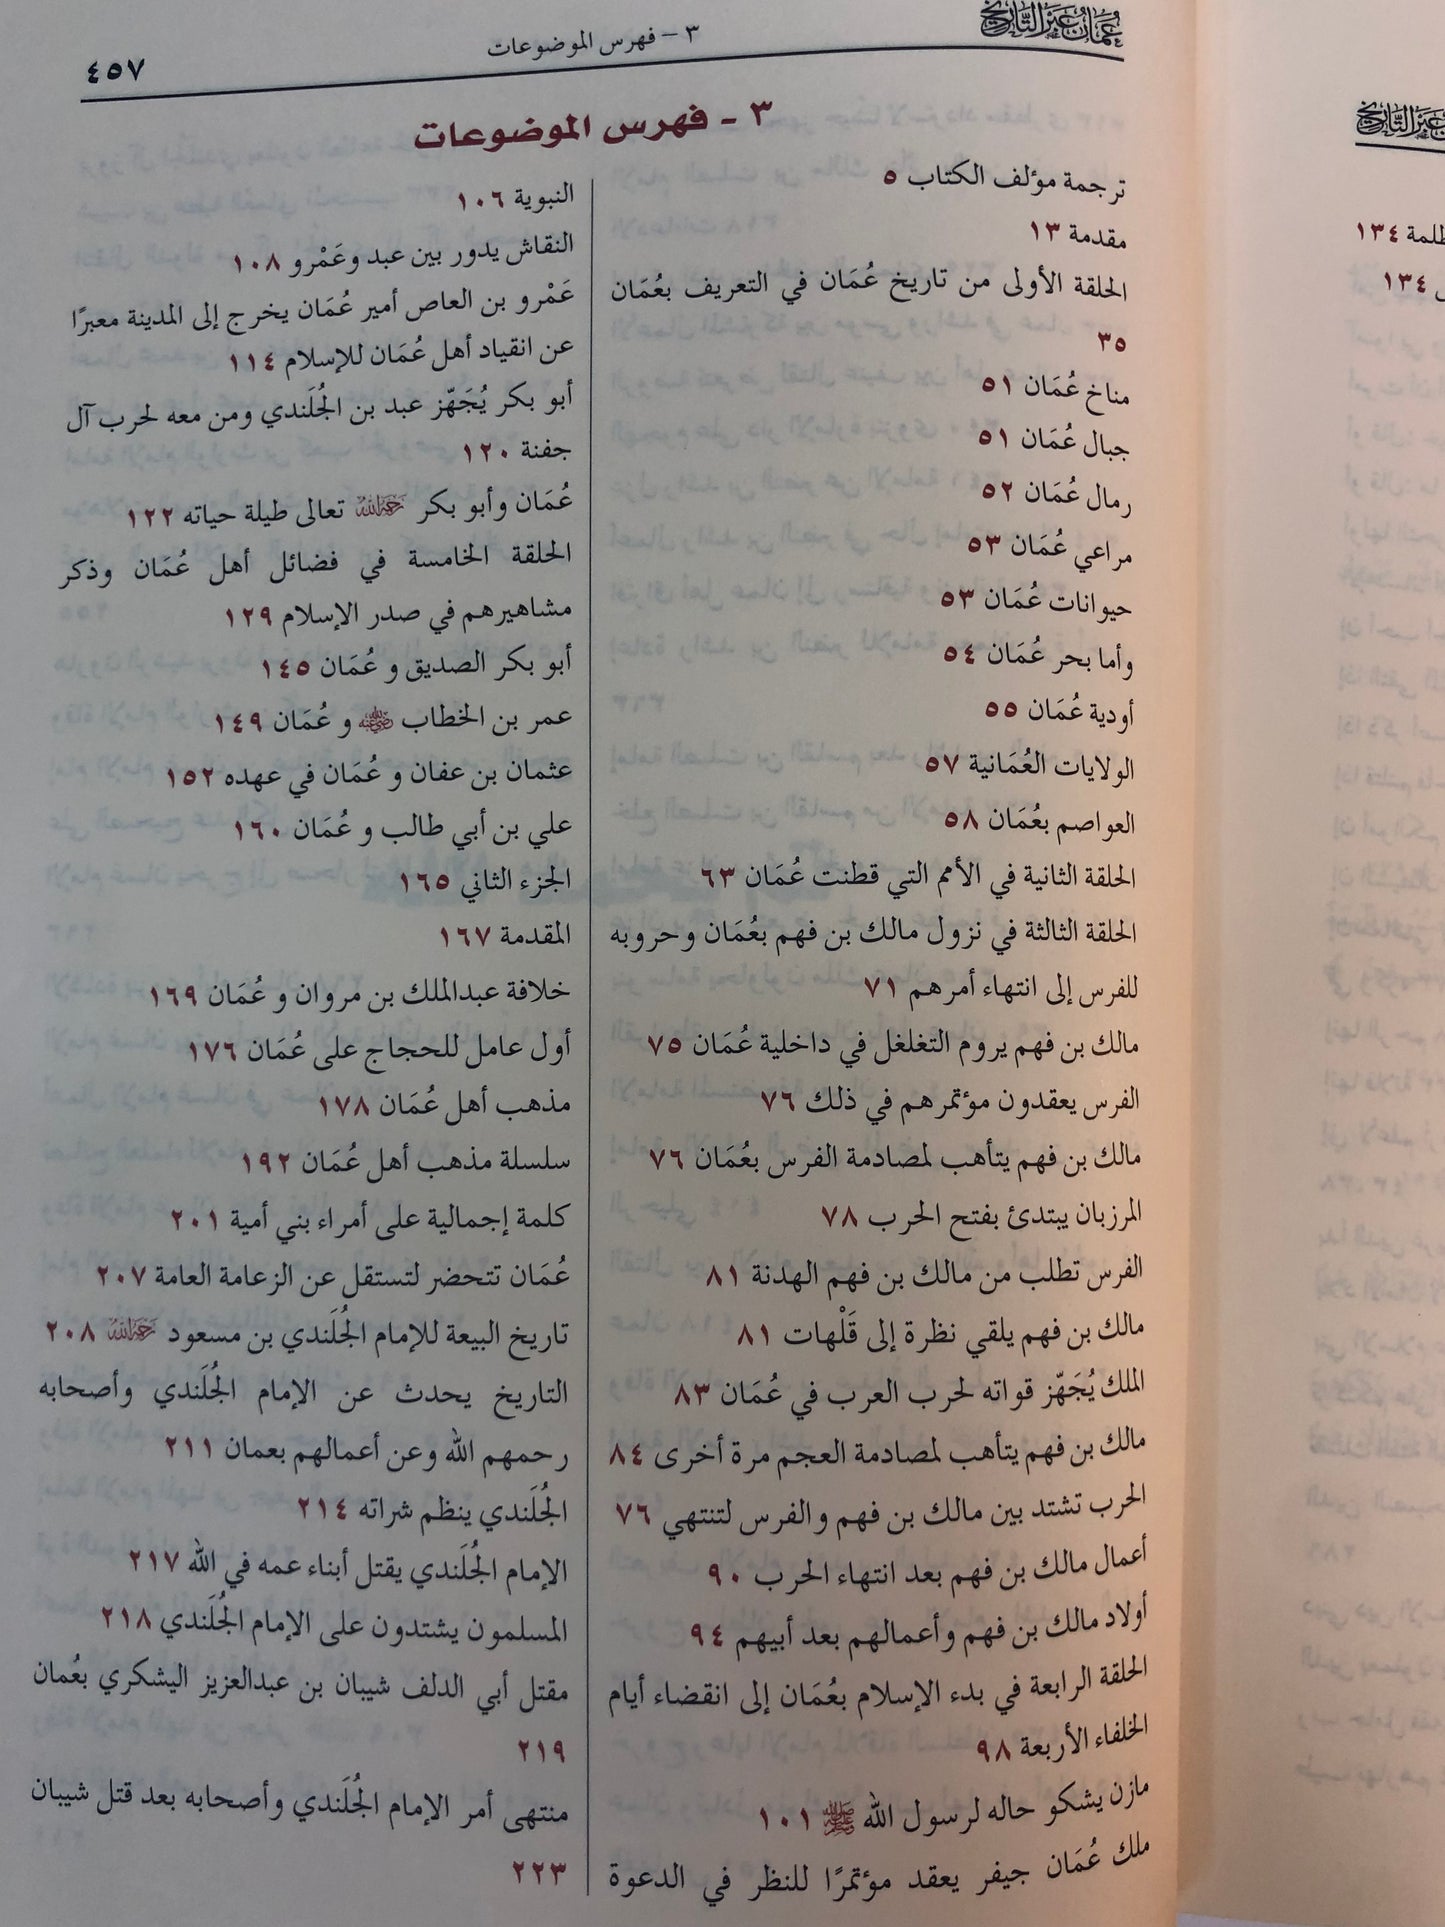 عُمَان عَبْرَ التَّارِيخ
٣ – فهرس الموضوعات
٤٥٧
٣ – فهرس الموضوعات
ترجمة مؤلف الكتاب ٥
مقدمة ١٣
الحلقة الأولى من تاريخ عُمَان في التعريف بعُمَان
٣٥
مناخ عُمَان ٥١
جبال عُمَان ٥١
رمال عُمَان ٥٢
مراعي عُمَان ٥٣
حيوانات عُمَان ٥٣
وأما بحر عُمَان ٥٤
أودية عُمَان ٥٥
الولايات العُمَانية ٥٧
العواصم بعُمَان ٥٨
الحلقة الثانية في الأمم التي قطنت عُمَان ٦٣
الحلقة الثالثة في نزول مالك بن فهم بعُمَان وحروبه
للفرس إلى انتهاء أمرهم ٧١
مالك بن فهم يروم التغلغل في داخلية عُمَان ٧٥
الفرس يعقدون مؤتمرهم في ذلك ٧٦
مالك بن فهم يتأهب لمصادمة الفرس بعُمَان ٧٦
المرزبان يبتدئ بفتح الحرب ٧٨
الفرس تطلب من مالك بن فهم الهدنة ٨١
مالك بن فهم يلقي نظرة إلى قَلْهات ٨١
الملك يُجَهّز قواته لحرب العرب في عُمَان ٨٣
مالك بن فهم يتأهب لمصادمة العجم مرة أخرى ٨٤
الحرب تشتد بين مالك بن فهم والفرس لتنتهي ٧٦
أعمال مالك بن فهم بعد انتهاء الحرب ٩٠
أولاد مالك بن فهم وأعمالهم بعد أبيهم ٩٤
الحلقة الرابعة في بدء الإسلام بعُمَان إلى انقضاء أيام
الخلفاء الأربعة ٩٨
مازن يشكو حاله لرسول الله ﷺ ١٠١
ملك عُمَان جيفر يعقد مؤتمرًا للنظر في الدعوة
النبوية ١٠٦
النقاش يدور بين عبد وعَمْرو ١٠٨
عَمْرو بن العاص أمير عُمَان يخرج إلى المدينة معبرًا
عن انقياد أهل عُمَان للإسلام ١١٤
أبو بكر يُجَهّز عبد بن الجُلَندي ومن معه لحرب آل
جفنة ١٢٠
عُمَان وأبو بكر رَحِمَهُ ٱللَّهُ تعالى طيلة حياته ١٢٢
الحلقة الخامسة في فضائل أهل عُمَان وذكر
مشاهيرهم في صدر الإسلام ١٢٩
أبو بكر الصديق و عُمَان ١٤٥
عمر بن الخطاب رضي الله عنه و عُمَان ١٤٩
عثمان بن عفان و عُمَان في عهده ١٥٢
علي بن أبي طالب و عُمَان ١٦٠
الجزء الثاني ١٦٥
المقدمة ١٦٧
خلافة عبدالملك بن مروان و عُمَان ١٦٩
أول عامل للحجاج على عُمَان ١٧٦
مذهب أهل عُمَان ١٧٨
سلسلة مذهب أهل عُمَان ١٩٢
كلمة إجمالية على أمراء بني أمية ٢٠١
عُمَان تتحضر لتستقل عن الزعامة العامة ٢٠٧
تاريخ البيعة للإمام الجُلَندي بن مسعود رَحِمَهُ ٱللَّهُ ٢٠٨
التاريخ يحدث عن الإمام الجُلَندي وأصحابه
رحمهم الله وعن أعمالهم بعمان ٢١١
الجُلَندي ينظم شراته ٢١٤
الإمام الجُلَندي يقتل أبناء عمه في الله ٢١٧
المسلمون يشتدون على الإمام الجُلَندي ٢١٨
مقتل أبي الدلف شيبان بن عبدالعزيز اليشكري بعُمان
٢١٩
منتهى أمر الإمام الجُلَندي وأصحابه بعد قتل شيبان
٢٢٣
١٣٤
١٣٤